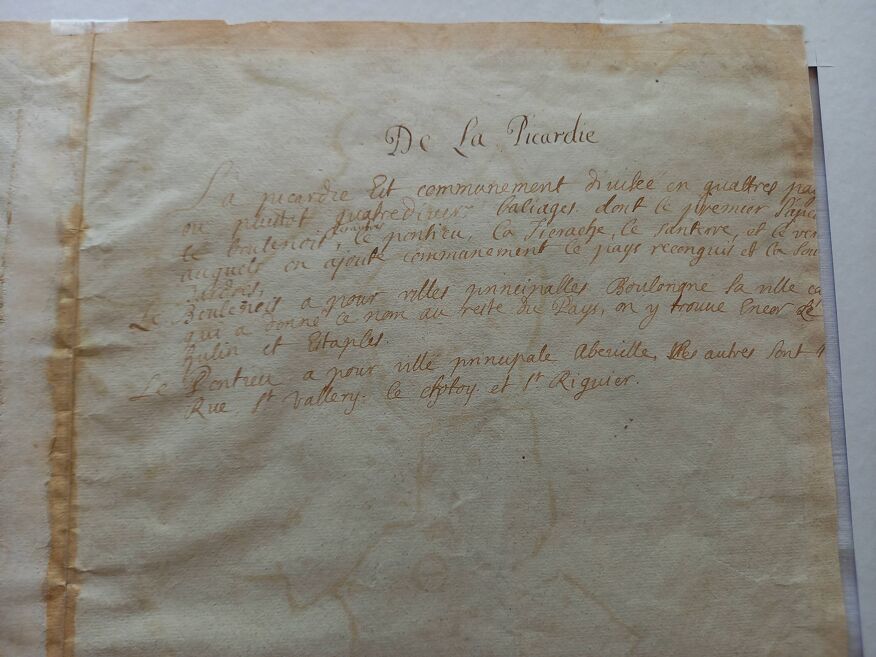 De La Picardie
La picardie Est communement divisée en quattres
ou plustot quatre baliages dont le premier
le boulenois, le pontieu, la tierache, le santerre, et le
auquels on ajoute communement le pays reconquis et la
Le Boulenois a pour villes principalles Boulongne sa ville
qui a donné ce nom au reste du Pays, on y trouve Encor
et Estaples.
Le Pontieu a pour ville principale Abeville, les autres sont
Rue St Vallery. le et St Riguier.